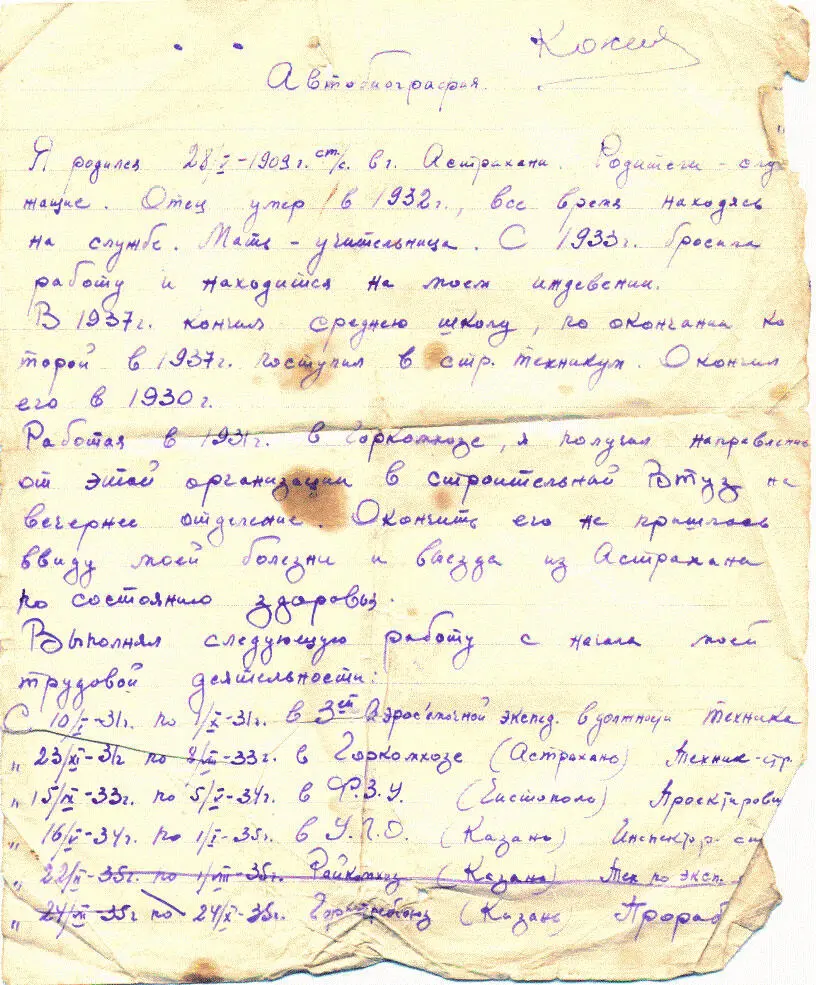 Копия
Автобиография.
Я родился 28/V-1909 г. ст/с. в г. Астрахани. Родители - слу
жащие. Отец умер в 1932 г., все время находясь
на службе. Мать - учительница. С 1933 г. бросила
работу и находится на моем иждевении.
В 1937 г. кончил среднею школу, по окончании ко
торой в 1937 г. поступил в стр. техникум. Окончил
его в 1930 г.
Работая в 1931 г. в Горкомхозе, я получил направление
от этой организации в строительной Втуз на
вечернее отделение. Окончить его не пришлось
ввиду моей болезни и выезда из Астрахани
по состоянию здоровья.
Выполнял следующую работу с начала моей
трудовой деятельности:
С 10/II-31 г. по 1/X-31 г. в 3ей Аэрос'емочной экспед. в должности техника
„ 23/XI-31 г. по 8/VII-33 г. в Горкомхозе (Астрахань) Техник-стр.
„ 15/IX-33 г. по 5/V-34 г. в Ф.З.У. (Чистополь) Проектировщ
„ 16/V-34 г. по 1/I-35 г. в У.П.О. (Казань) Инспектор
„ 22/II-35 г. по 1/VII-35 г. Райкомхоз (Казань) Тех по эксп.
„ 24/VII-35 г. по 24/X-35 г. (Казань) Прораб